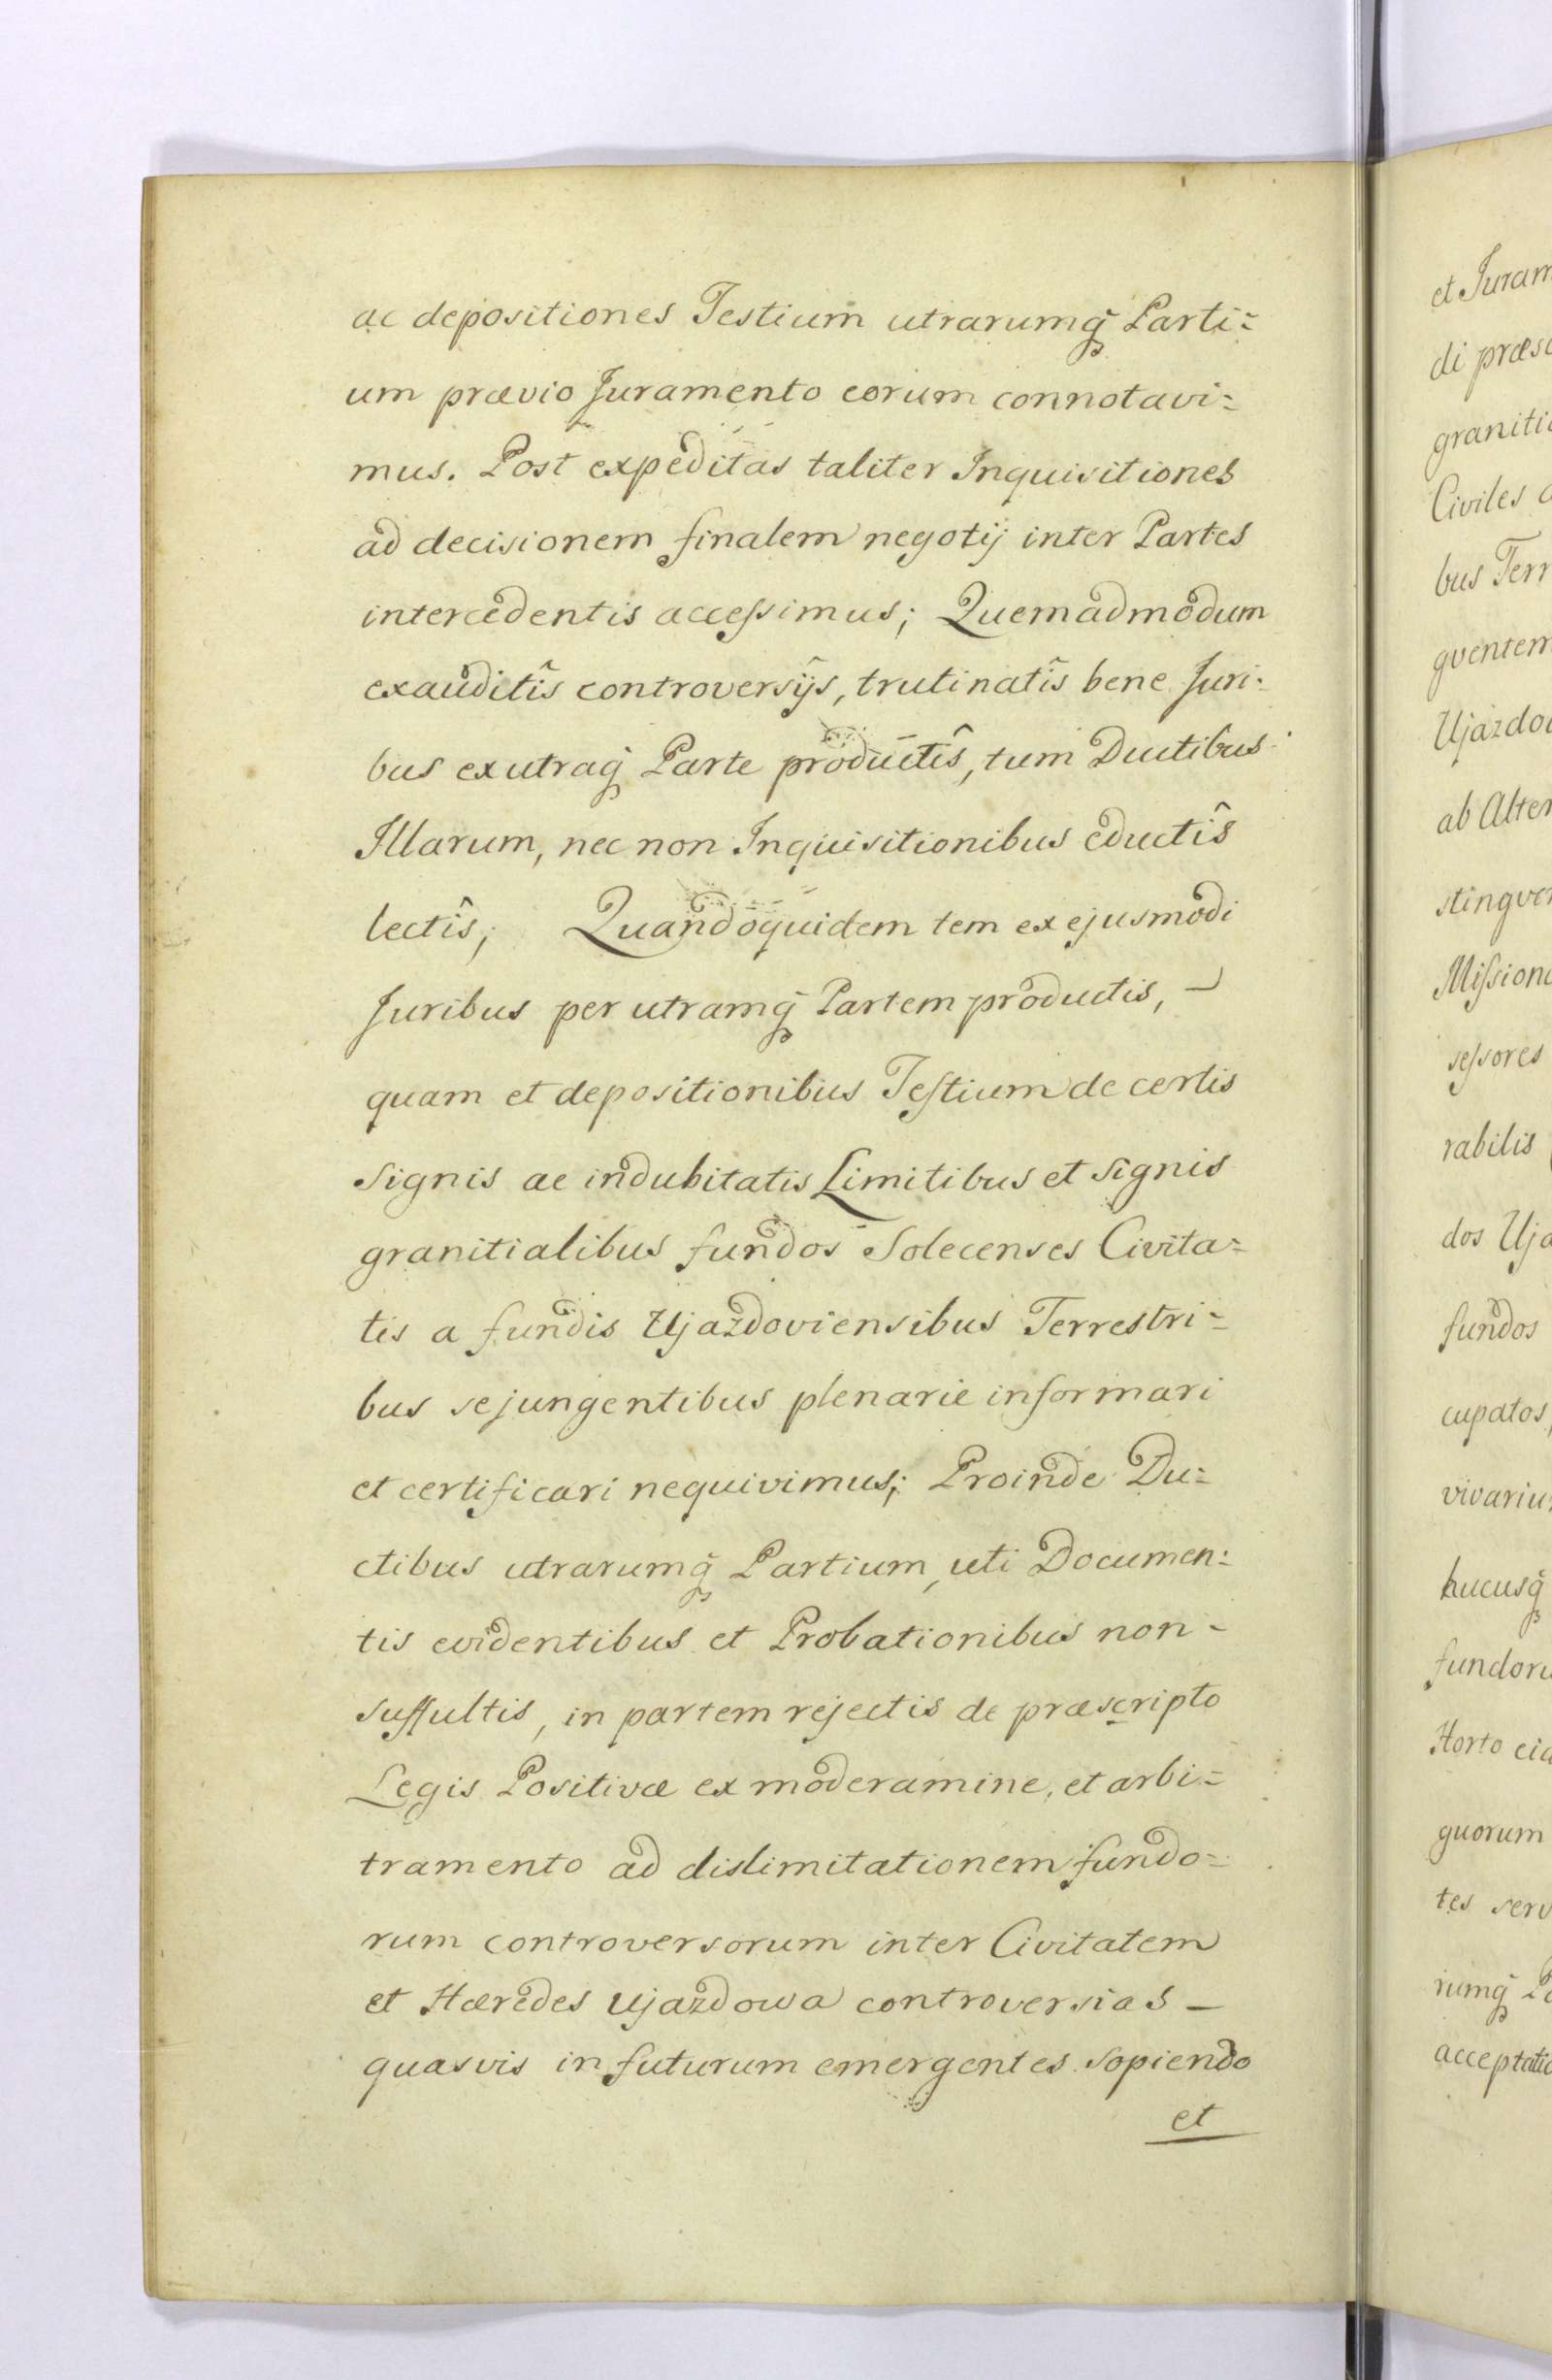 ac depositiones Testium utrarumq̃ Parti=
um prævio Juramento eorum connotavi=
mus. Post expeditas taliter Inquisitiones
ad decisionem finalem negotij inter Partes
intercedentis accessimus; Quemadmodum
exauditîs controversijs, trutinatîs bene Juri=
bus ex utraq̃ Parte productîs, tum Ductibus
Illarum, nec non Inquisitionibus eductîs
lectîs; Quandoquidem tem ex ejusmodi
Juribus per utramq̃ Partem productis, –
quam et depositionibus Testium de certis
signis ac indubitatis Limitibus et signis
granitialibus fundos Solecenses Civita=
tis a fundis Ujazdoviensibus Terrestri=
bus sejungentibus plenarie informari
et certificari nequivimus; Proinde Du=
ctibus utrarumq̃ Partium, uti Documen=
tis evidentibus et Probationibus non –
suffultis, in partem rejectis de præscripto
Legis Positivæ ex moderamine, et arbi=
tramento ad dislimitationem fundo=
rum controversorum inter Civitatem
et Hæredes Ujazdowa controversias –
quasvis in futurum emergentes sopiendo
et
et Juram
di præsc
graniti
Civiles
bus Terr
gventem
Ujazdo
ab Alter
stingver
Mission
sessores
rabilis
dos Uja
fundos
cupatos,
vivariu
hucusq̃
fundoru
Horto
quorum
tes serv
rumq̃
acceptatio